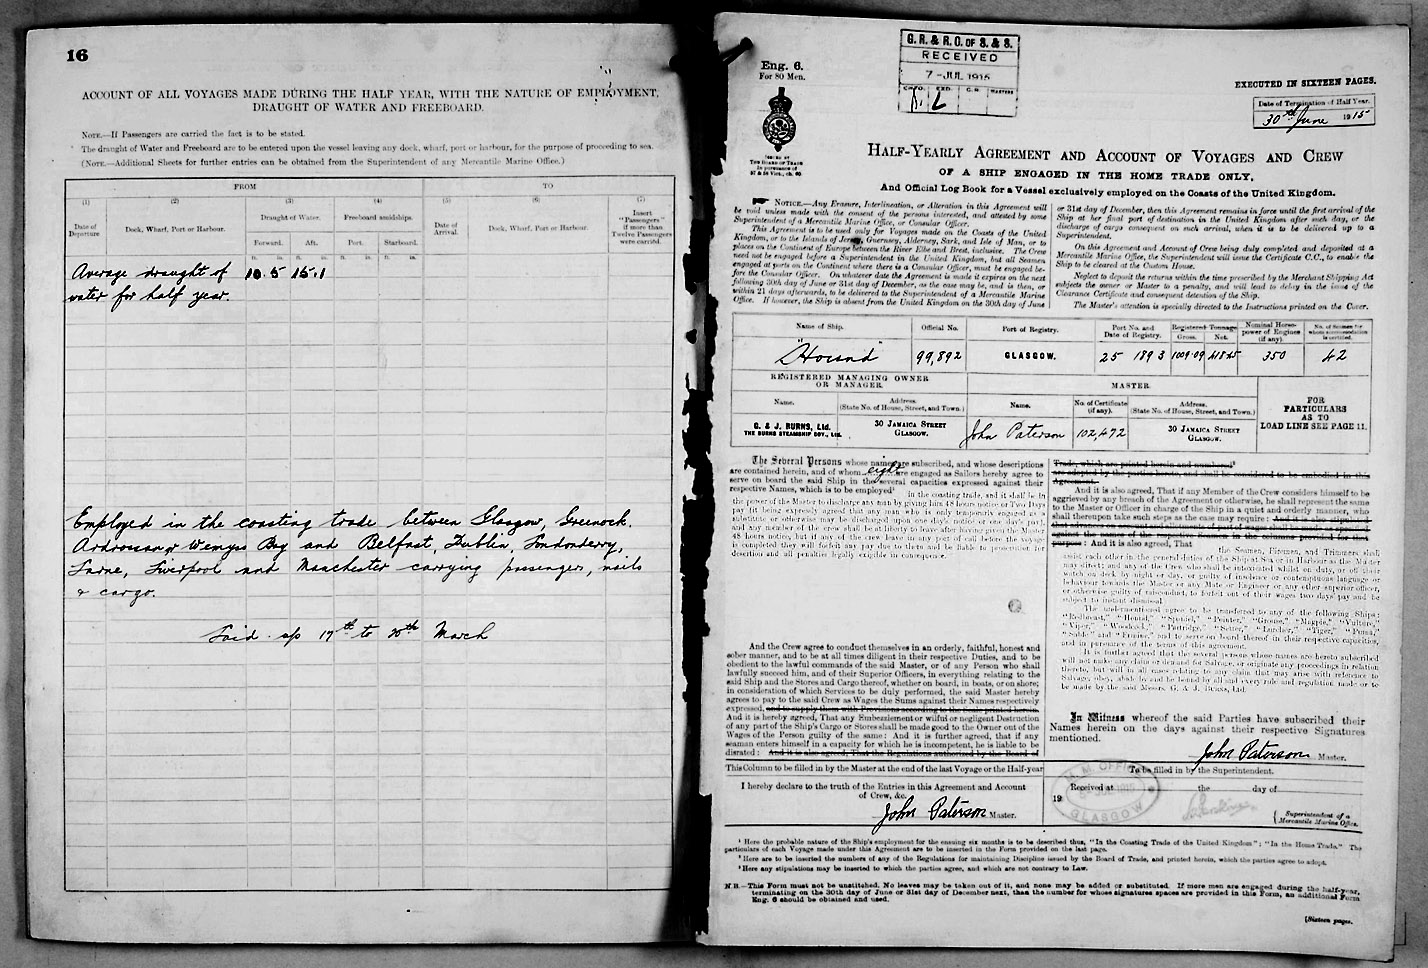 16
ACCOUNT OF ALL VOYAGES MADE DURING THE HALF YEAR, WITH THE NATURE OF EMPLOYMENT,
DRAUGHT OF WATER AND FREEBOARD.
NOTE.—If Passengers are carried the fact is to be stated.
The draught of Water and Freeboard are to be entered upon the vessel leaving any dock, wharf, port or harbour, for the purpose of proceeding to sea.
(NOTE.—Additional Sheets for further entries can be obtained from the Superintendent of any Mercantile Marine Office.)
FROM TO
(1) (2) (3) (4) (5) (6) (7)
Date of Departure Dock, Wharf, Port or Harbour. Draught of Water. Freeboard amidships. Date of Arrival. Dock, Wharf, Port or Harbour. Insert "Passengers" if more than Twelve Passengers were carried.
Forward. Aft. Port. Starboard.
ft. in. ft. in. ft. in. ft. in.
Average draught of 10.5 15.1
water for half year.
Employed in the coasting trade between Glasgow, Greenock,
Ardrossan or Wemyss Bay and Belfast, Dublin, Londonderry,
Larne, Liverpool and Manchester carrying passengers, mails
& cargo.
Laid up 17th to 30th March
Eng. 6.
For 80 Men.
G. R. & R. O. OF S. & S.
RECEIVED
7-JUL 1915
EXECUTED IN SIXTEEN PAGES.
Date of Termination of Half Year.
30th June 1915
ISSUED BY
THE BOARD OF TRADE
in pursuance of
57 & 58 Vict., ch. 60.
HALF-YEARLY AGREEMENT AND ACCOUNT OF VOYAGES AND CREW
OF A SHIP ENGAGED IN THE HOME TRADE ONLY,
And Official Log Book for a Vessel exclusively employed on the Coasts of the United Kingdom.
NOTICE.—Any Erasure, Interlineation, or Alteration in this Agreement will
be void unless made with the consent of the persons interested, and attested by some
Superintendent of a Mercantile Marine Office, or Consular Officer.
This Agreement is to be used only for Voyages made on the Coasts of the United
Kingdom, or to the Islands of Jersey, Guernsey, Alderney, Sark, and Isle of Man, or to
places on the Continent of Europe between the River Elbe and Brest, inclusive. The Crew
need not be engaged before a Superintendent in the United Kingdom, but all Seamen
engaged at ports on the Continent where there is a Consular Officer, must be engaged be-
fore the Consular Officer. On whatever date the Agreement is made it expires on the next
following 30th day of June or 31st day of December, as the case may be, and is then, or
within 21 days afterwards, to be delivered to the Superintendent of a Mercantile Marine
Office. If however, the Ship is absent from the United Kingdom on the 30th day of June
or 31st day of December, then this Agreement remains in force until the first arrival of the
Ship at her final port of destination in the United Kingdom after such day, or the
discharge of cargo consequent on such arrival, when it is to be delivered up to a
Superintendent.
On this Agreement and Account of Crew being duly completed and deposited at a
Mercantile Marine Office, the Superintendent will issue the Certificate C.C., to enable the
Ship to be cleared at the Custom House.
Neglect to deposit the returns within the time prescribed by the Merchant Shipping Act
subjects the owner or Master to a penalty, and will lead to delay in the issue of the
Clearance Certificate and consequent detention of the Ship.
The Master's attention is specially directed to the Instructions printed on the Cover.
Name of Ship. Official No. Port of Registry. Port No. and Date of Registry. Registered Tonnage Gross. Net. Nominal Horse-power of Engines (if any). No. of Seamen for whom accommodation is certified.
99,892 GLASGOW. 25 1893 1009.09 418.45 350 42
REGISTERED MANAGING OWNER OR MANAGER. MASTER.
Name. Address. (State No. of House, Street, and Town.) Name. No. of Certificate (if any). Address. (State No. of House, Street, and Town.)
FOR PARTICULARS AS TO LOAD LINE SEE PAGE 11.
G. & J. BURNS, Ltd. 30 JAMAICA STREET John Paterson 102,472 30 JAMAICA STREET
THE BURNS STEAMSHIP COY., Ltd. GLASGOW. GLASGOW.
The Several Persons whose names are subscribed, and whose descriptions
are contained herein, and of whom eight are engaged as Sailors hereby agree to
serve on board the said Ship in the several capacities expressed against their
respective Names, which is to be employed in the coasting trade, and it shall be in
the power of the Master to discharge any man by giving him 48 hours notice or Two Days
pay (it being expressly agreed that any man who is only temporarily engaged as a
substitute or otherwise may be discharged upon one day's notice or one day's pay),
and any member of the crew shall be at liberty to leave after having given the Master
48 hours notice, but if any of the crew leave in any port of call before the voyage
is completed they will forfeit any pay due to them and be liable to prosecution for
desertion and all penalties legally exigible in consequence.
And the Crew agree to conduct themselves in an orderly, faithful, honest and
sober manner, and to be at all times diligent in their respective Duties, and to be
obedient to the lawful commands of the said Master, or of any Person who shall
lawfully succeed him, and of their Superior Officers, in everything relating to the
said Ship and the Stores and Cargo thereof, whether on board, in boats, or on shore;
in consideration of which Services to be duly performed, the said Master hereby
agrees to pay to the said Crew as Wages the Sums against their Names respectively
expressed, and to supply them with Provisions according to the Scale printed herein.
And it is hereby agreed, That any Embezzlement or wilful or negligent Destruction
of any part of the Ship's Cargo or Stores shall be made good to the Owner out of the
Wages of the Person guilty of the same: And it is further agreed, that if any
seaman enters himself in a capacity for which he is incompetent, he is liable to be
disrated: And it is also agreed, That the Regulations authorized by the Board of
Trade, which are printed herein and numbered
as adopted by the parties and shall be considered to be embodied in this
Agreement.
And it is also agreed, That if any Member of the Crew considers himself to be
aggrieved by any breach of the Agreement or otherwise, he shall represent the same
to the Master or Officer in charge of the Ship in a quiet and orderly manner, who
shall thereupon take such steps as the case may require:
And it is also agreed, That the Seamen, Firemen, and Trimmers shall
assist each other in the general duties of the Ship at Sea or in Harbour as the Master
may direct; and any of the Crew who shall be intoxicated whilst on duty, or off their
watch on deck by night or day, or guilty of insolence or contemptuous language or
behaviour towards the Master or any Mate or Engineer or any other superior officer,
or otherwise guilty of misconduct, to forfeit out of their wages two days' pay and be
subject to instant dismissal.
The undermentioned agree to be transferred to any of the following Ships:
"Redbreast," "Hound," "Spaniel," "Pointer," "Grouse," "Magpie," "Vulture,"
"Viper," "Woodcock," "Partridge," "Setter," "Lurcher," "Tiger," "Puma,"
"Sable" and "Ermine," and to serve on board thereof in their respective capacities,
and in pursuance of the terms of this agreement.
It is further agreed that the several persons whose names are hereto subscribed
will not make any claim or demand for Salvage, or originate any proceedings in relation
thereto, but will in all cases relating to any claim that may arise with reference to
Salvage, obey, abide by and be bound by all and every rule and regulation made or to
be made by the said Messrs. G. & J. BURNS, Ltd.
In Witness whereof the said Parties have subscribed their
Names herein on the days against their respective Signatures
mentioned.
John Paterson Master.
This Column to be filled in by the Master at the end of the last Voyage or the Half-year
I hereby declare to the truth of the Entries in this Agreement and Account
of Crew, &c.
John Paterson Master.
To be filled in by the Superintendent.
Received at the day of
19
M. M. OFFICE
GLASGOW
Superintendent of a
Mercantile Marine Office.
¹ Here the probable nature of the Ship's employment for the ensuing six months is to be described thus, "In the Coasting Trade of the United Kingdom"; "In the Home Trade." The
particulars of each Voyage made under this Agreement are to be inserted in the Form provided on the last page.
² Here are to be inserted the numbers of any of the Regulations for maintaining Discipline issued by the Board of Trade, and printed herein, which the parties agree to adopt.
³ Here any stipulations may be inserted to which the parties agree, and which are not contrary to Law.
N.B.—This Form must not be unstitched. No leaves may be taken out of it, and none may be added or substituted. If more men are engaged during the half-year,
terminating on the 30th day of June or 31st day of December next, than the number for whose signatures spaces are provided in this Form, an additional Form
Eng. 6 should be obtained and used.
[Sixteen pages.